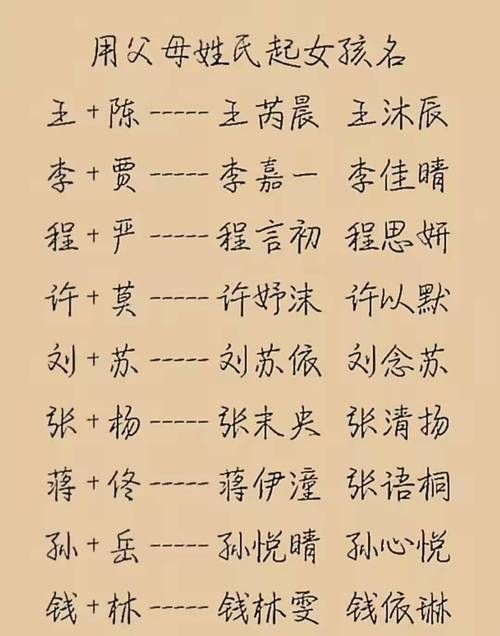 用父母姓氏起女孩名
王+陈-----王芮晨 王沐辰
李+贾-----李嘉一 李佳晴
程+严-----程言初 程思妍
许+莫-----许妤沫 许以默
刘+苏-----刘苏依 刘念苏
张+杨-----张未央 张清扬
蒋+佟-----蒋伊潼 张语桐
孙+岳-----孙悦晴 孙心悦
钱+林-----钱林雯 钱依琳